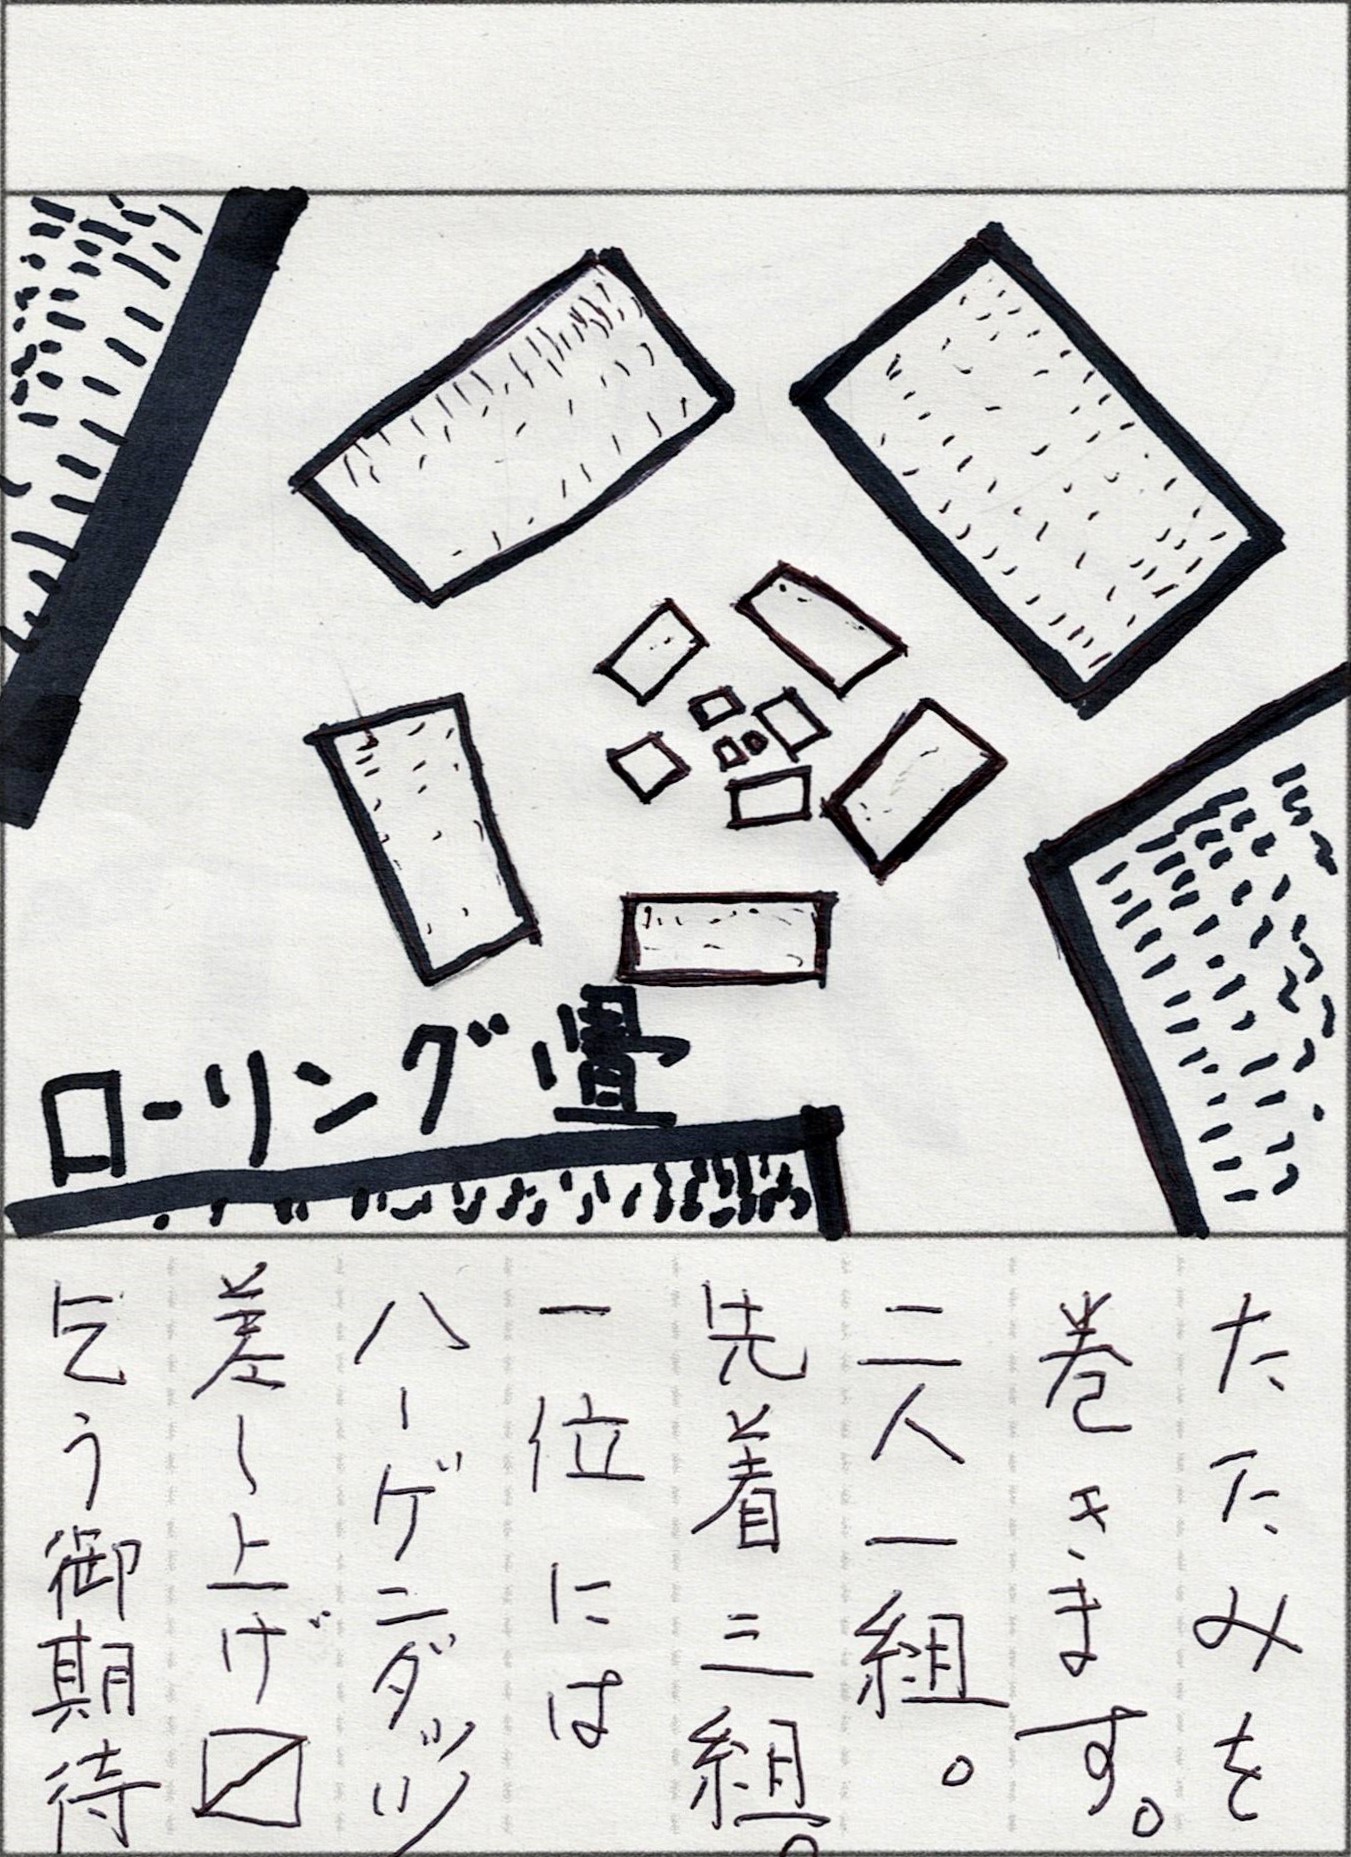 ローリング畳
たたみを
巻きます。
二人一組。
先着三組。
一位には
ハーゲンダッツ
差し上げ〼
乞う御期待